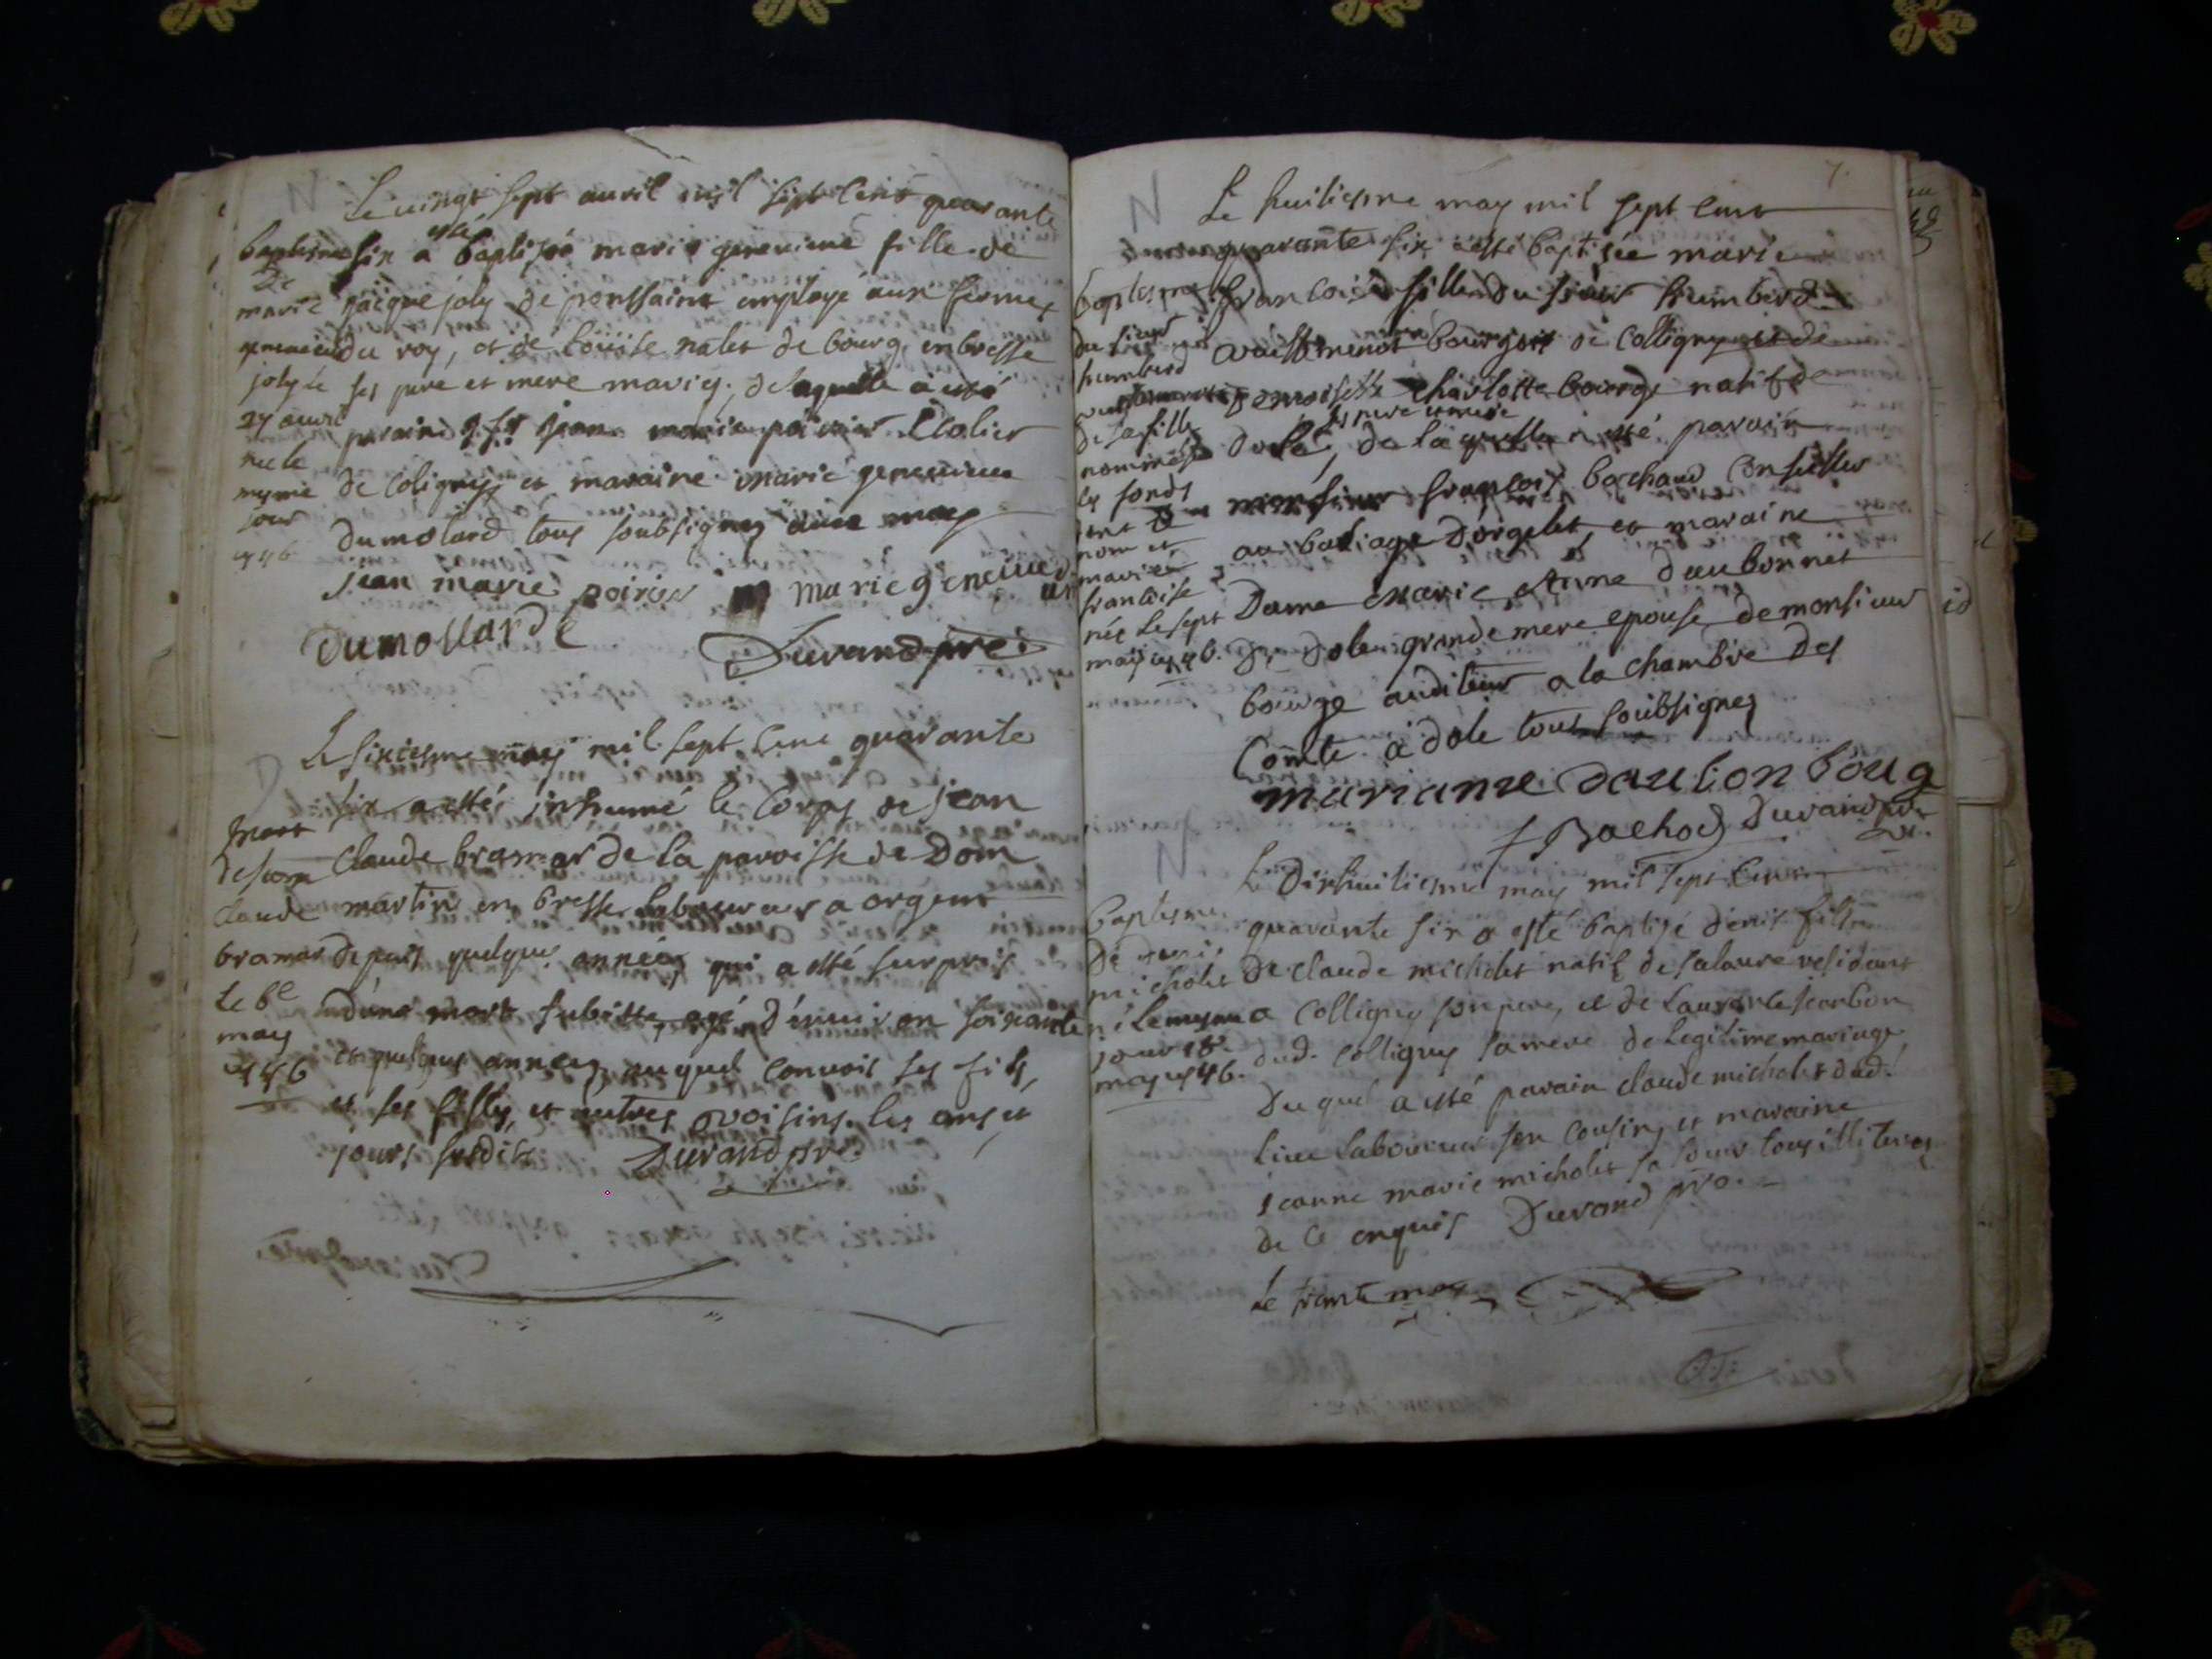 Le vingt sept avril mil sept cent quarante
six a esté baptisée marie genevieve fille de
jacque joly de ponssaint employé aux fermes
du roy, et de Louise nalet de bourg en bresse
ses pere et mere mariez, de laquelle a esté
parain jean marie poirier Ecolier
de coligny et maraine marie genevieve
dumolard tous soubsignez avec moy
baptesme
de
marie
genevieve
joly le
27 avril
née le
mesme
jour
1746
jean marie poirier marie genevieve
Dumollarde
Durand pre.
Le sixiesme may mil sept cent quarante
six a esté inhumé le corps de jean
claude bramar de la paroisse de Dom
martin en bresse laboureur a orgent
depuis quelques années qui a esté surpris
d'une mort subitte, agé d'environ soixante
et quelques années, auquel convois ses fils,
et ses filles, et autres voisins. les ans et
jours susdits Durand pre.
mort
de jean
claude
bramar
le 6e
may
1746
7.
N
Le huitiesme may mil sept cent
quarante six a esté baptisée marie
francoise fille du sieur humberd
bourgois de colligny et de
demoiselle charlotte bourge natif de
dole, ses pere et mere de laquelle a esté parain
monsieur francois bachaud conseiller
au baliage Dorgelet, et maraine
Dame marie Anne daubonnet
de dole grande mere epouse de monsieur
bourge auditeur a la chambre des
Comte a dole tous soubsignez
baptesme
du sieur
humberd
de sa fille
nommée
les fonds
nom et
marie
francoise
née le sept
may 1746.
marianne daubon boug
f Bachod Durand pre
N
Le Dixhuitiesme may mil sept cent
quarante six a esté baptisé denis fils
de claude micholet natif de salavre residant
a colligny son pere, et de Laurence scarbon
dud. colligny sa mere de legitime mariage
Du quel a esté parain claude micholet dud.
lieu laboureur son cousin, et maraine
jeanne marie micholet sa soeur tous illiterés
de ce enquis Durand pre.
baptesme
de denis
micholet
né le mesme
jour 18
may 1746.
Le trente may